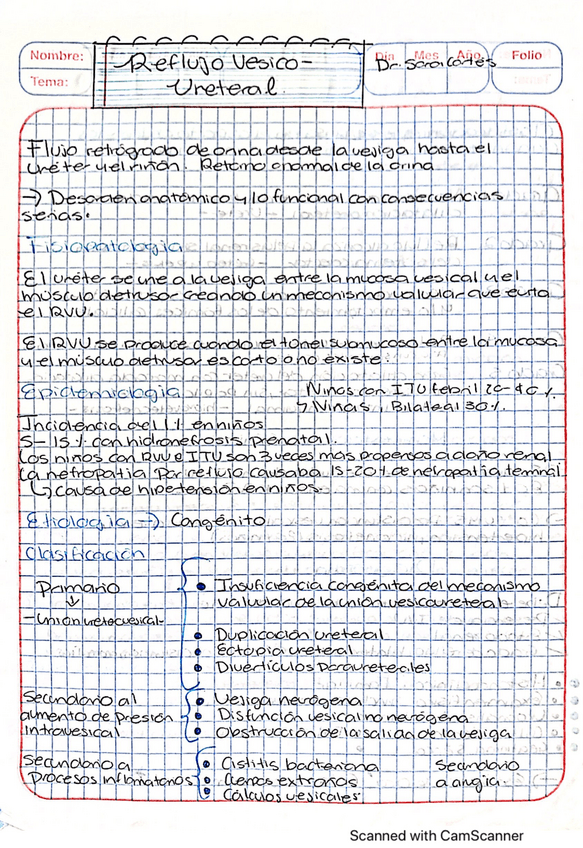 Nombre:
Tema:
Reflujo Vesico-
Ureteral.
Día Mes Año
Folio
Dr. Sara Cortes
Flujo retrógrado de orina desde la vejiga hasta el
uréter y el riñón. Retorno anormal de la orina
→ Desorden anatómico y/o funcional con consecuencias
serias.
Fisiopatologia
El uréter se une a la vejiga entre la mucosa vesical y el
músculo detrusor creando un mecanismo valvular que evita
el RVU.
El RVU se produce cuando el túnel submucoso entre la mucosa
y el músculo detrusor es corto o no existe.
Epidemiologia
Niños con ITU febril 20-40%.
→ Niñas, Bilateral 30%.
Incidencia del 1% en niños
5-15% con hidronefrosis prenatal.
Los niños con RVU e ITU son 3 veces mas propensos a daño renal
La nefropatía por reflujo causaba 15-20% de nefropatía terminal
↳ causa de hipetensión en niños.
Etiologia → Congénito
Clasificación
Primario
↓
-Unión uretovesical-
• Insuficiencia congénita del mecanismo
valvular de la unión vesicoureteral
• Duplicación ureteral
• Ectopia ureteral
• Divertículos paraureteciles
Secundario al
aumento de presión
intravesical
• Vejiga neurógena
• Disfunción vesical no neurógena
• Obstrucción de la salida de la vejiga
Secundario a
Procesos inflamatorios
• Cistitis bacteriana
• Cuerpos extraños
• Cálculos vesicales
Secundario
a
Scanned with CamScanner